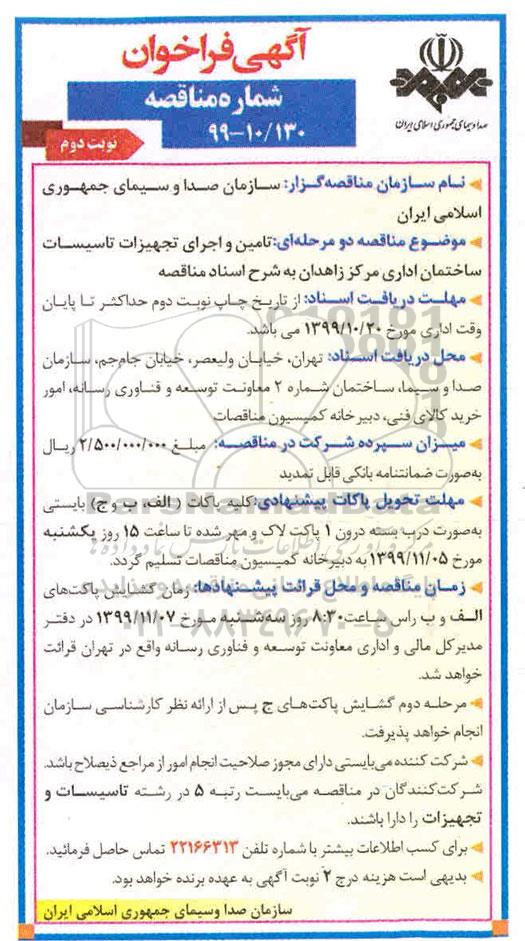 آگهی فراخوان
شماره مناقصه
۹۹-۱۰/۱۳۰
نوبت دوم
صدا و سیمای جمهوری اسلامی ایران
نـام سـازمان مناقصه‌گـزار: سـازمان صـدا و سـیمای جمهـوری
اسلامی ایران
موضـوع مناقصه دو مرحله‌ای: تامین و اجرای تجهیزات تاسیسـات
ساختمان اداری مرکز زاهدان به شرح اسناد مناقصه
مهلـت دریافـت اسـناد: از تاریخ چـاپ نوبت دوم حداکثر تـا پایان
وقت اداری مورخ ۱۳۹۹/۱۰/۲۰ می باشد.
محل دریافت اسـناد: تهران، خیابـان ولیعصر، خیابان جام‌جم، سازمان
صدا و سیما، ساختمان شماره ۲ معاونت توسعه و فناوری رسانه، امور
خرید کالای فنی، دبیرخانه کمیسیون مناقصات
میـزان سـپرده شـرکت در مناقصـه: مبلـغ ۲/۵۰۰/۰۰۰/۰۰۰ ریـال
به‌صورت ضمانتنامه بانکی قابل تمدید
مهلت تحویل پاکات پیشنهادی: کلیه پاکات (الف، ب و ج) بایستی
به‌صورت درب بسته درون ۱ پاکت لاک و مهر شده تا ساعت ۱۵ روز یکشنبه
مورخ ۱۳۹۹/۱۱/۰۵ به دبیرخانه کمیسیون مناقصات تسلیم گردد.
زمـان مناقصه و محل قرائت پیشـنهادها: زمان گشـایش پاکت‌های
الـف و ب راس ساعت۸:۳۰ روز سه‌شنبه مـورخ ۱۳۹۹/۱۱/۰۷ در دفتـر
مدیرکل مالی و اداری معاونت توسعه و فناوری رسانه واقع در تهران قرائت
خواهد شد.
مرحلـه دوم گشـایش پاکت‌هـای ج پـس از ارائه نظر کارشناسـی سازمان
انجام خواهد پذیرفت.
شرکت کننده می‌بایستی دارای مجوز صلاحیت انجام امور از مراجع ذیصلاح باشد.
شـرکت‌کننـدگان در مناقصـه می‌بایسـت رتبـه ۵ در رشـته تاسیسـات و
تجهیزات را دارا باشند.
برای کسب اطلاعات بیشتر با شماره تلفن ۲۲۱۶۶۳۱۳ تماس حاصل فرمائید.
بدیهی است هزینه درج ۲ نوبت آگهی به عهده برنده خواهد بود.
سازمان صدا وسیمای جمهوری اسلامی ایران
ParsNamadData
۰۲۱-۸۸۳۴۹۶۷۰-۵